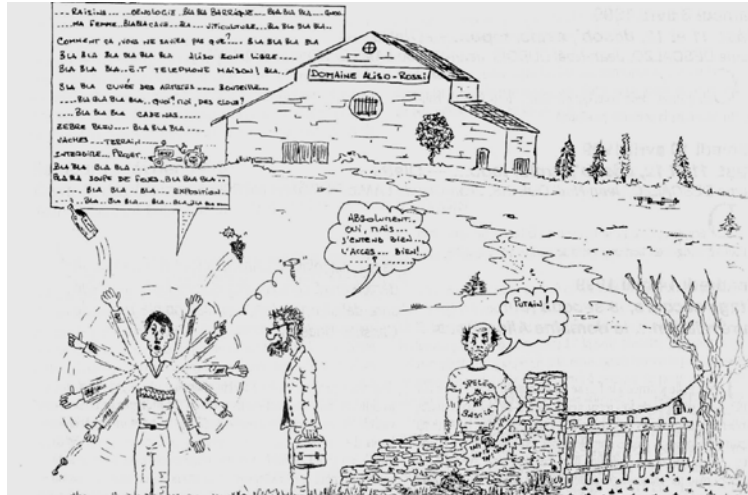 ... RAISINS ...... OENOLOGIE. BLA BLA BARRIQUE.... BLA BLA BLA ....
.... MA FEMME BLABLACAVE... BLA .... VITICULTURE... BLA BLA BLA....
COMMENT ÇA, VOUS NE SAVEZ PAS QUE?.... BLA BLA BLA BLA
BLA BLA BLA BLA BLA BLA ALISO ZONE LIBRE....
BLA BLA BLA... E.T TELEPHONE MAISON! BLA...
BLA BLA CUVÉE DES ARTISTES ..... BOUTEILLE....
.... BLA BLA BLA BLA... QUOI! MOI, DES CLOUS?
BLA BLA BLA CADENAS....
ZEBRE BLEU.... BLA BLA BLA ....
VACHES .... TERRAIN....
INTERDIRE... PROJET...
BLA BLA BLA BLA....
BLA BLA SOUPE DE FEVES. BLA BLA BLA..
.... BLA BLA ... BLA ... EXPOSITION....
.... BLA... BLA BLA... BLA.. BLA BLA BLA....
DOMAINE ALISO-ROSSI
ABSOLUMENT..
OUI, MAIS...
J'ENTEND BIEN..
L'ACCES.... BIEN!..
.... ? .....
PUTAIN!
SPELEO
BASTIA